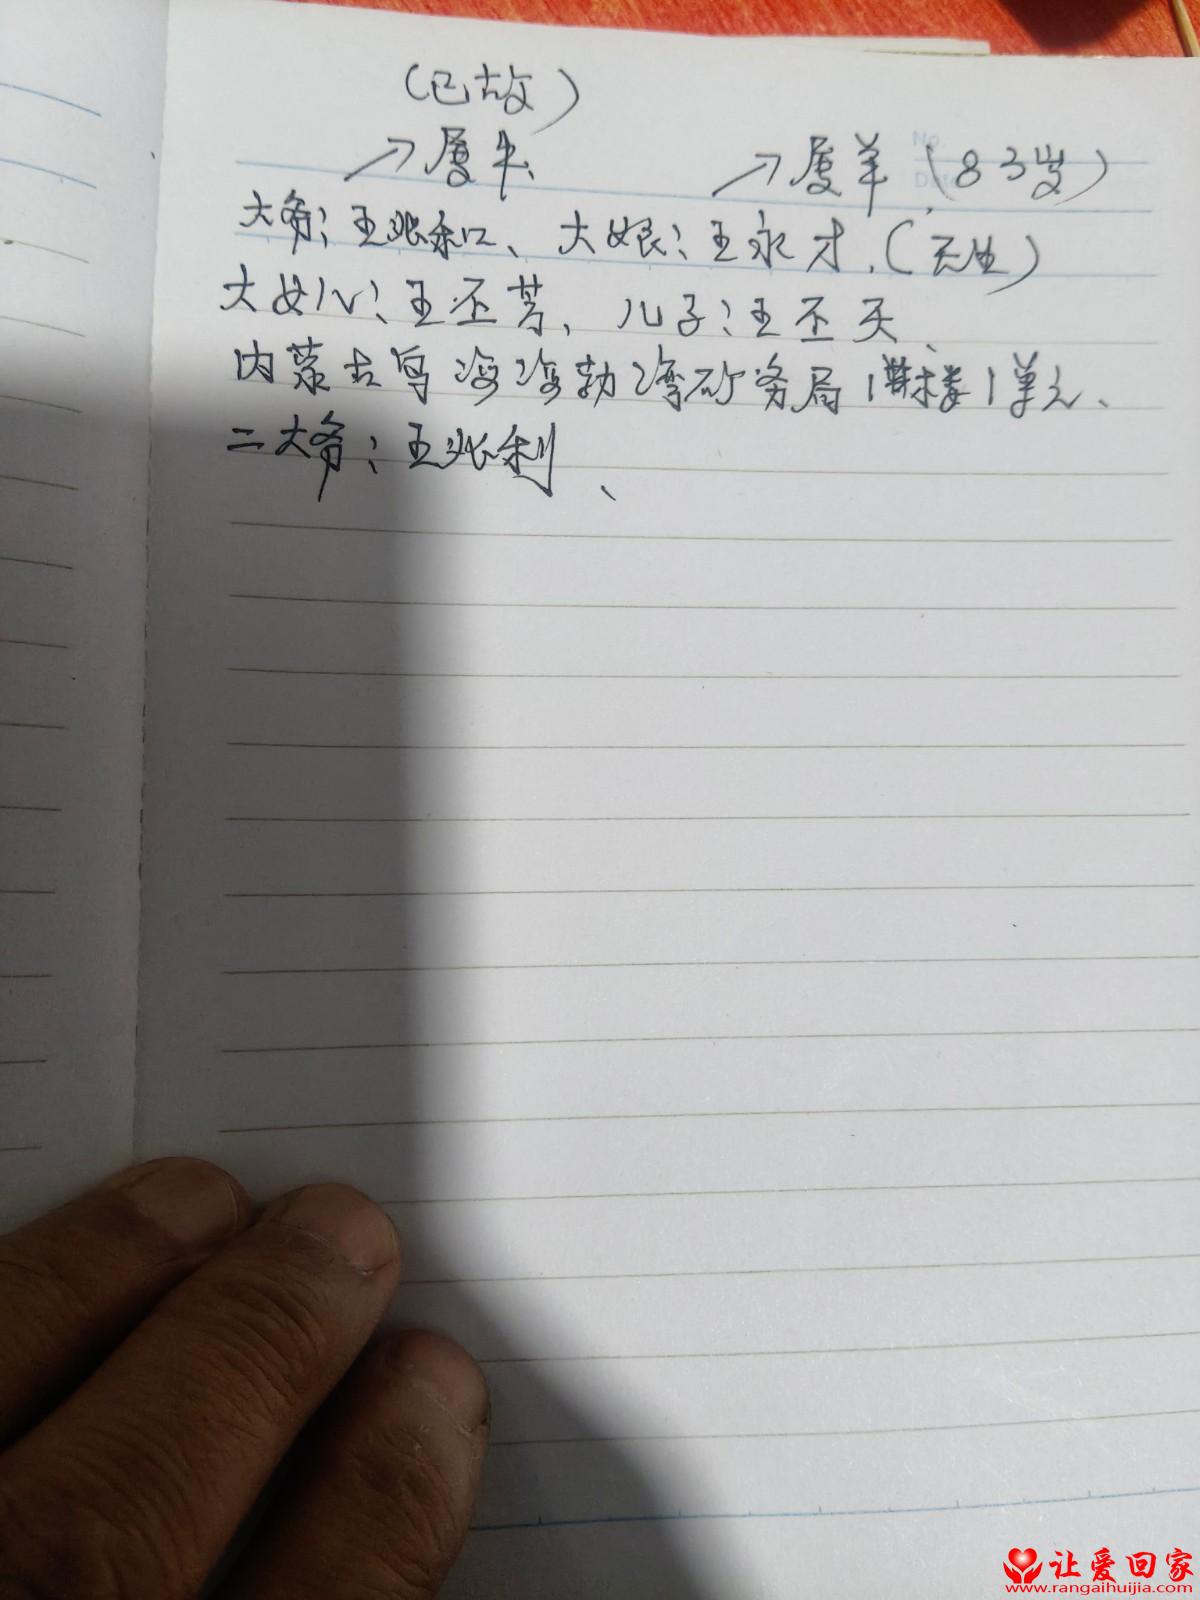 (已故)
→属牛 →属羊(83岁)
No.
大爷:王张和、大娘:王永才.(医生)
大女儿:王丕芳、儿子:王丕天、
内蒙古乌海海勃湾矿务局1栋楼1单元、
二大爷:王张利、
让爱回家
www.rangaihuijia.com